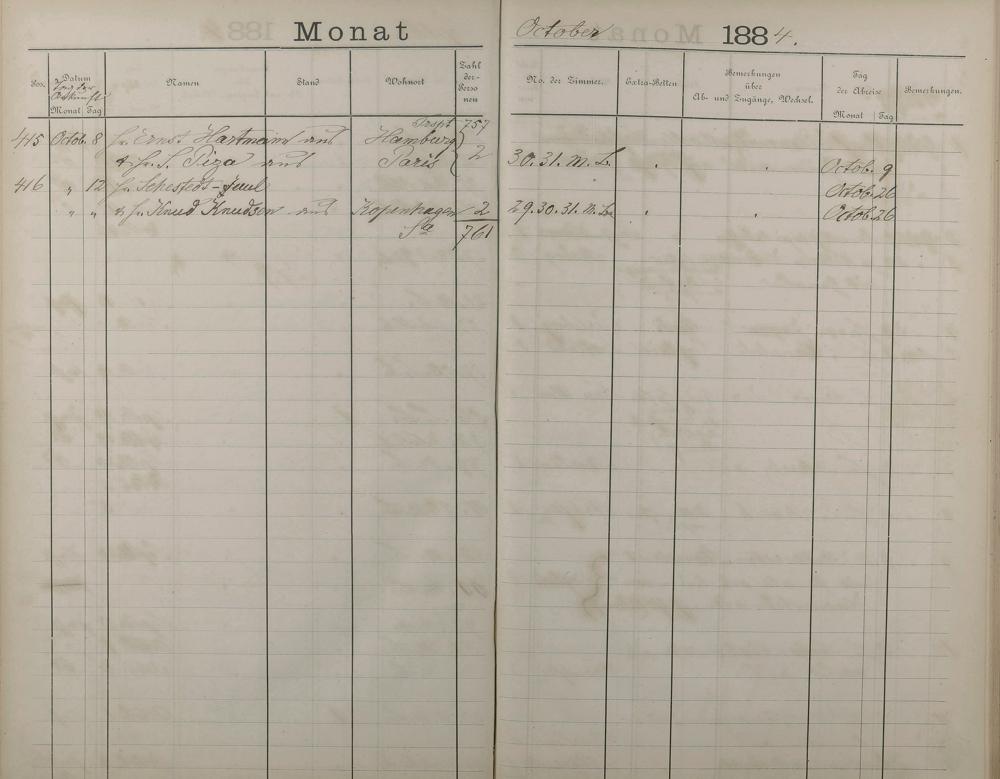 Monat October 1884.
Nro. Datum Tag der Ankunft Monat Tag Namen Stand Wohnort Zahl der Personen No. der Zimmer. Extra-Betten Bemerkungen über Ab- und Zugänge, Wechsel. Tag der Abreise Monat Tag Bemerkungen.
Trspt 757
415 Octob. 8 Hr. Ernst Hartmann aus Hamburg
& Hr. S. Piza aus Paris 2 30. 31. M. L. Octob. 9
416 " 12 Hr. Sehestedt-Juul Octob. 26
" " & Hr. Knud Knudsen aus Kopenhagen 2 29. 30. 31. M. L. Octob. 26
Sa 761